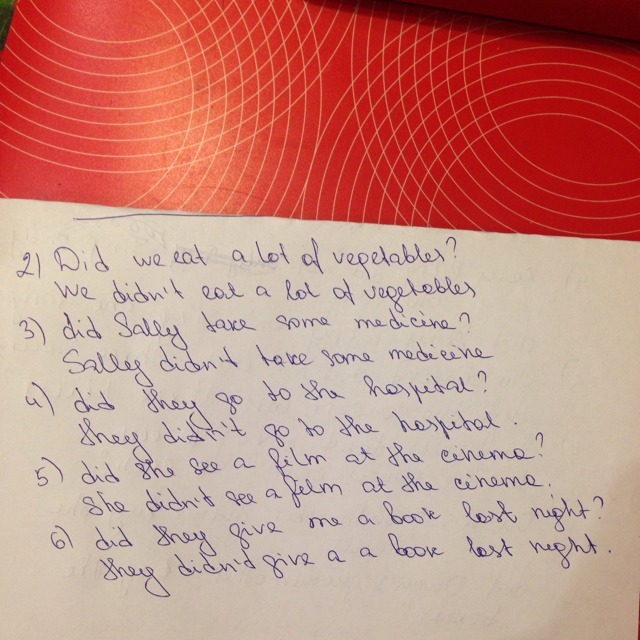 2) Did we eat a lot of vegetables?
We didn't eat a lot of vegetables
3) did Sally take some medicine?
Sally didn't take some medicine
4) did they go to the hospital?
they didn't go to the hospital.
5) did she see a film at the cinema?
she didn't see a film at the cinema.
6) did they give me a book last night?
they didn'd give a a book last night.